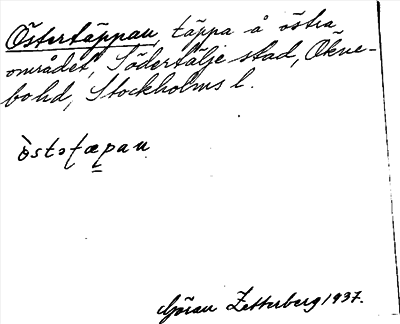 Östertäppan, täppa å östra
området, Södertälje stad, Ökne-
bo hd, Stockholms l.
östəṭæpan
Göran Zetterberg 1937.